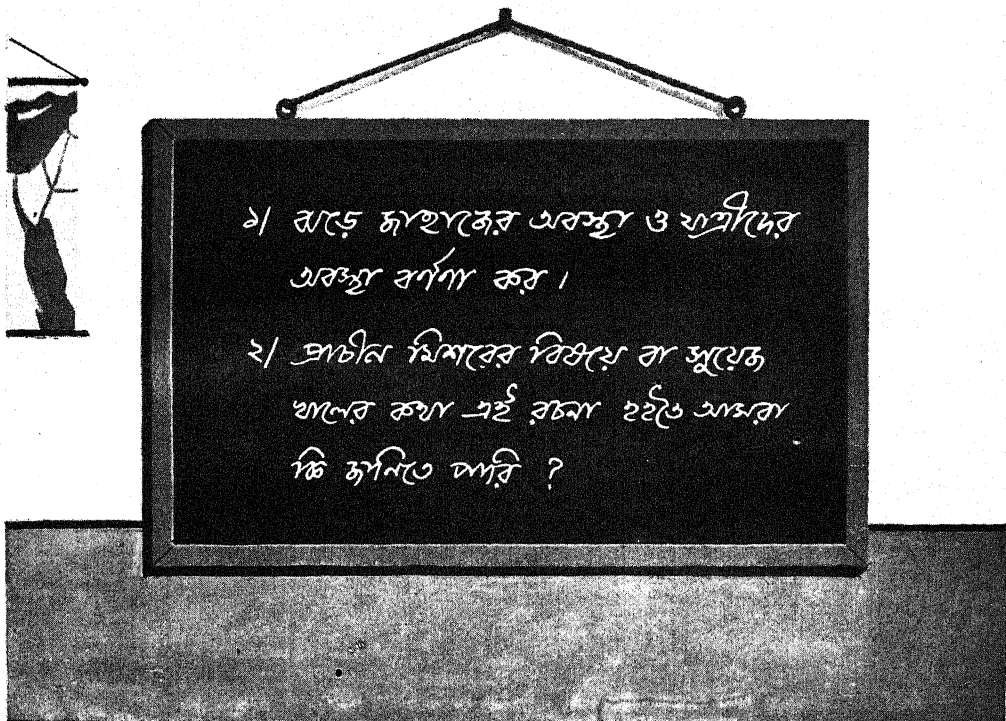 ১। ঝড়ে জাহাজের অবস্থা ও যাত্রীদের
অবস্থা বর্ণণা কর।
২। প্রাচীন মিশরের বিষয়ে বা সুয়েজ
খালের কথা এই রচনা হইতে আমরা
কি জানিতে পারি ?